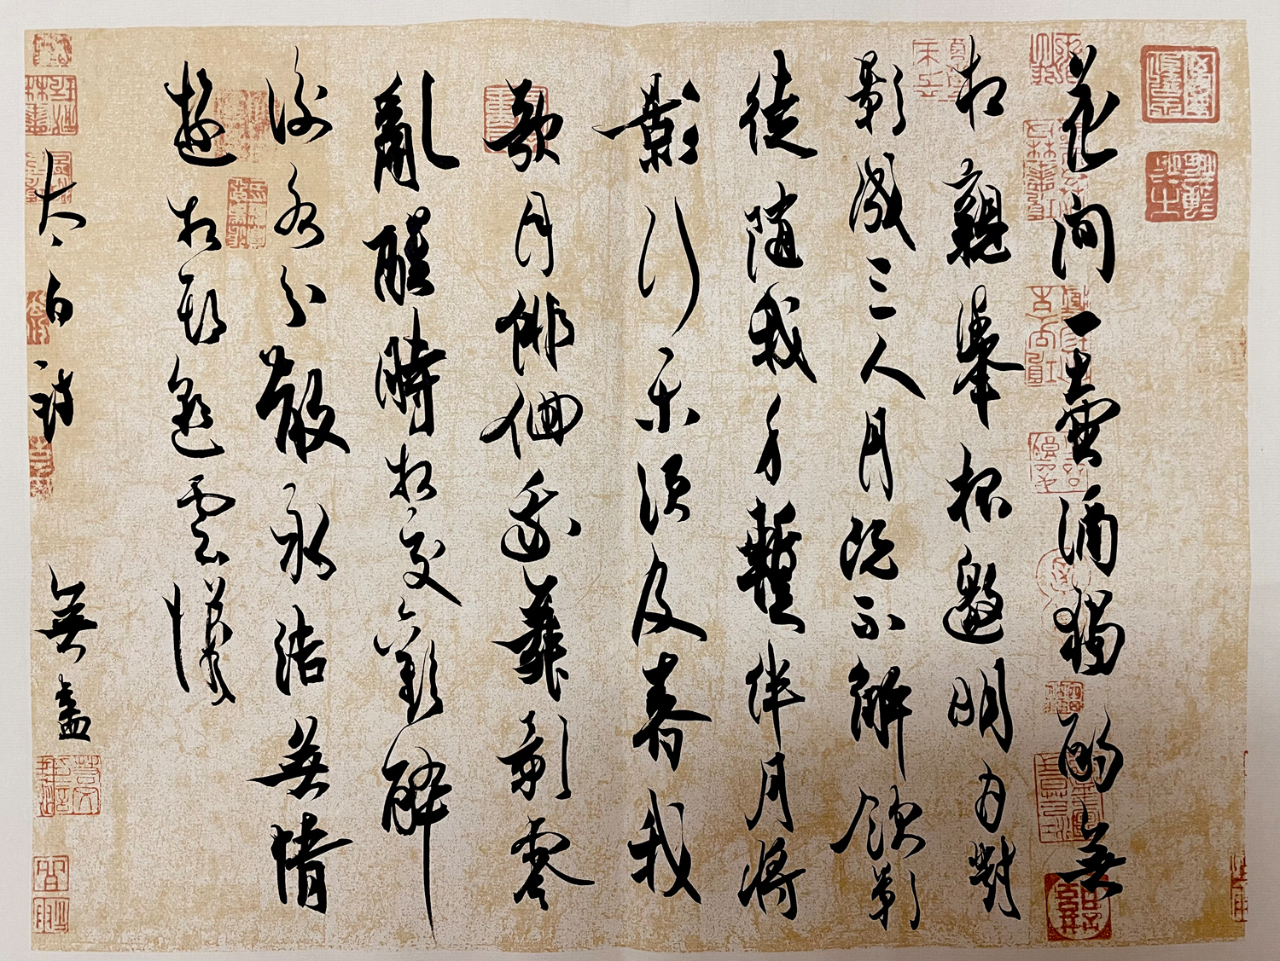 花間一壺酒獨酌無
相親舉杯邀明月對
影成三人月既不解飲影
徒隨我身暫伴月將
影行樂須及春我
歌月徘徊我舞影零
亂醒時相交歡醉
後各分散永結無情
遊相期邈雲漢
太白詩 無盡